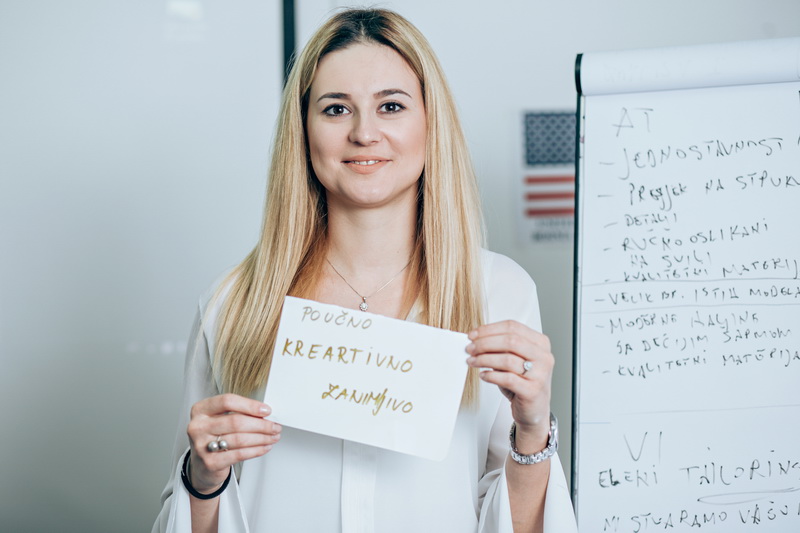 POUČNO
KREARTIVNO
ZANIMJIVO
AT
- JEDNOSTAVNOST
- PRESJEK NA STRUK
- DETALJI
- RUČNO OSLIKANI
NA SVILI
- KVALITETNI MATERIJ
- VELIK BR. ISTIH MODELA
- MODERNE HALJINE
SA DEČIJIM ŠARMOM
- KVALITETNI MATERIJA
VI
TAILORING
MI STVARAMO VAŠU